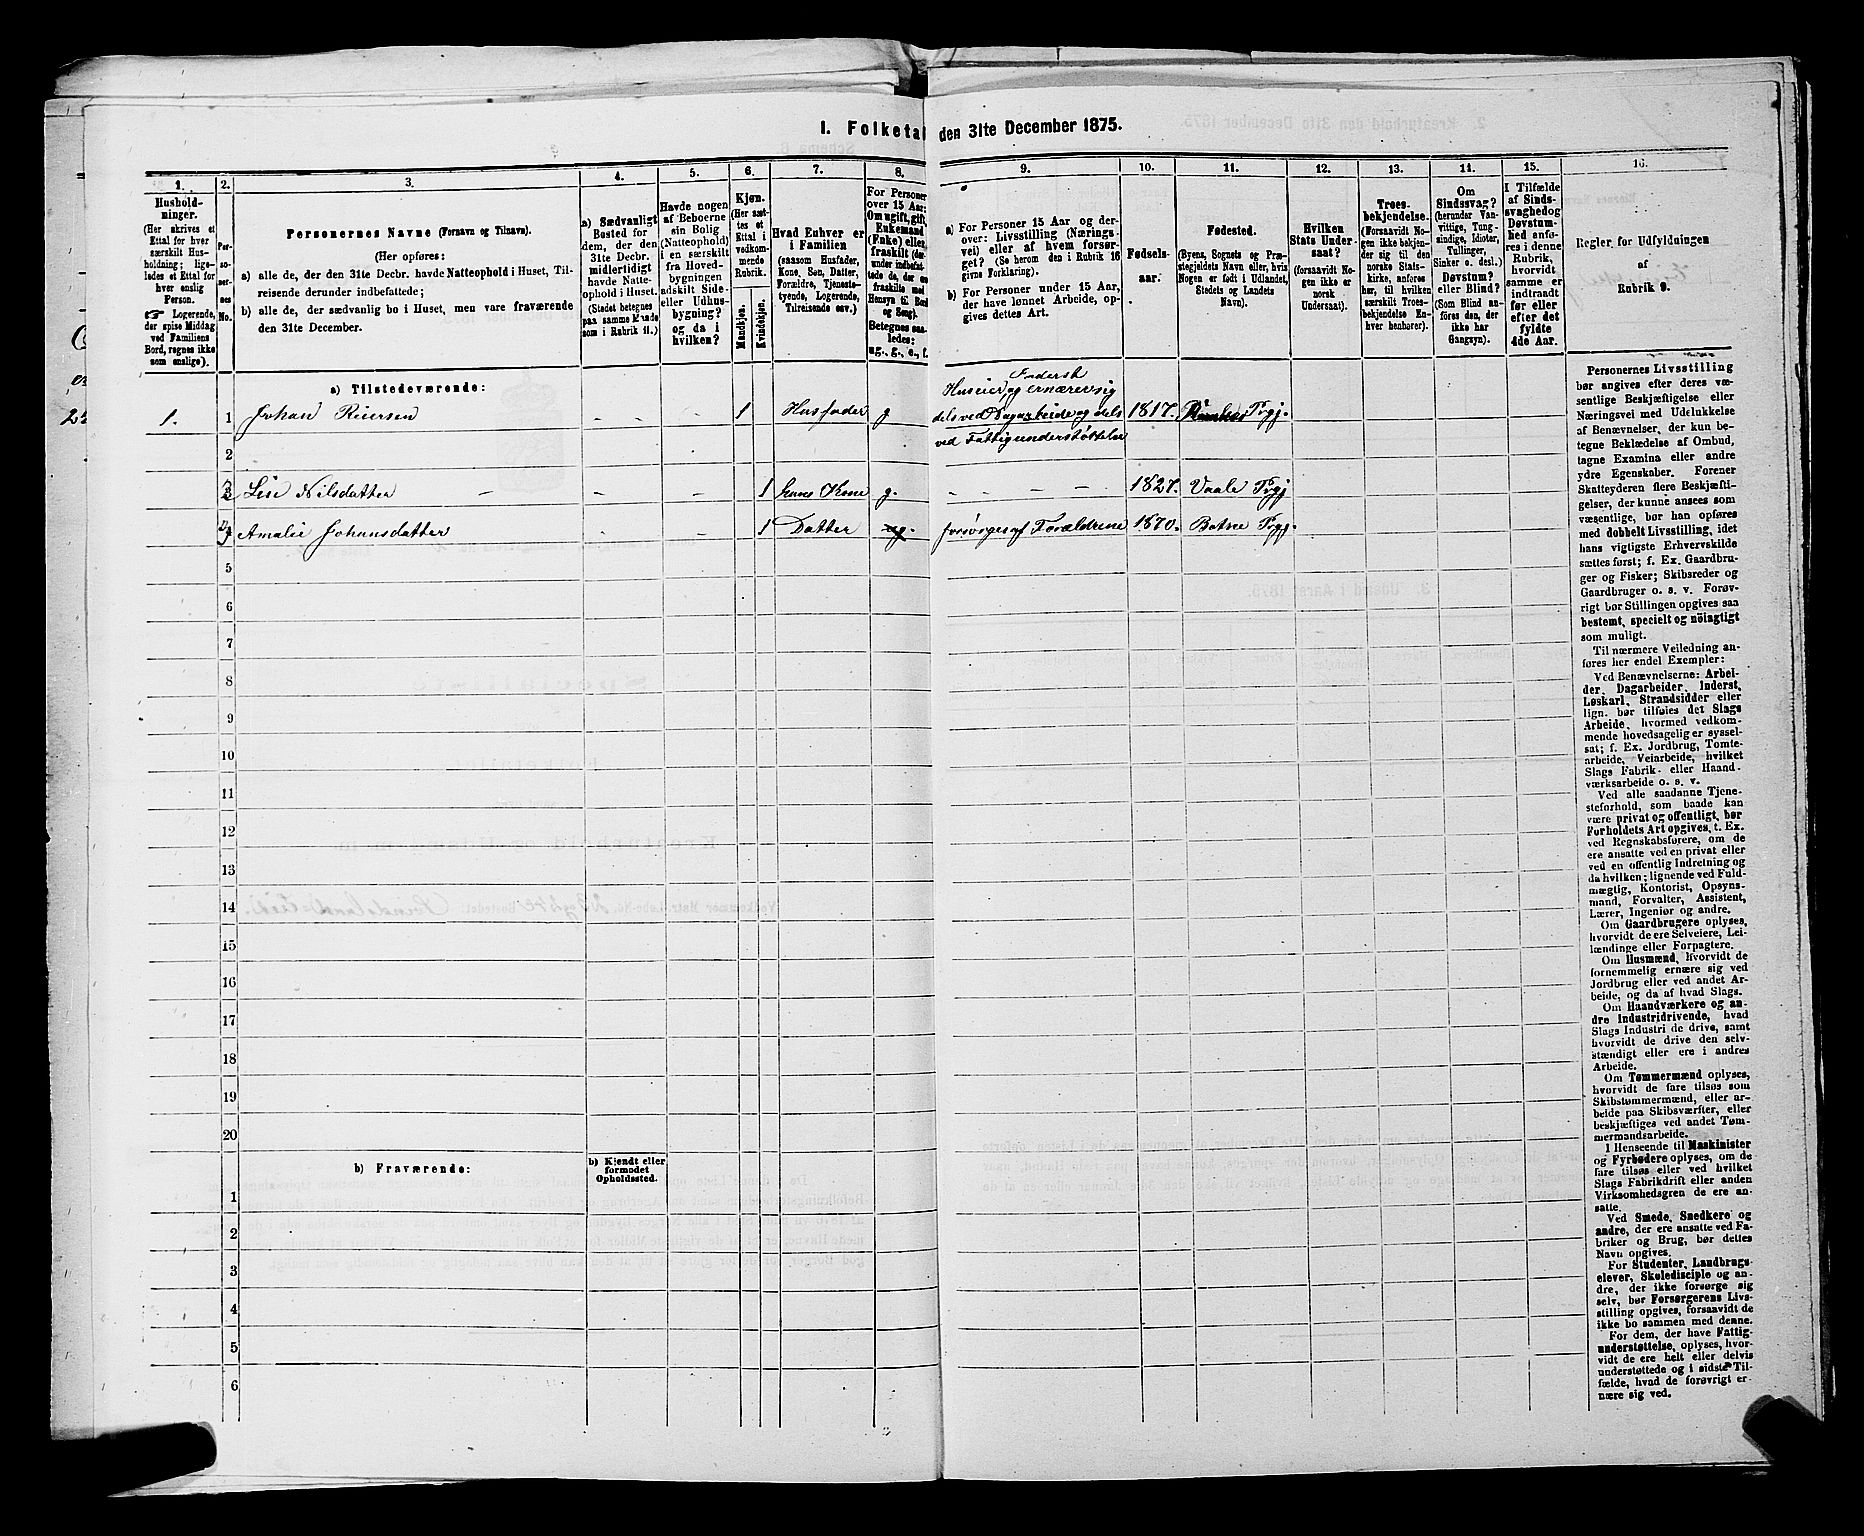 I. Folketal den 31te December 1875.
1.
Hushold-
ninger.
(Her skrives et
Ettal for hver
særskilt Hus-
holdning; lige-
ledes et Ettal for
hver enslig
Person.
☞ Logerende,
der spise Middag
ved Familiens
Bord, regnes ikke
som enslige).
2.
Per-
so-
ner-
nes
No.
3.
Personernes Navne (Fornavn og Tilnavn).
(Her opføres:
a) alle de, der den 31te Decbr. havde Natteophold i Huset, Til-
reisende derunder indbefattede;
b) alle de, der sædvanlig bo i Huset, men vare fraværende
den 31te December.
4.
a) Sædvanligt
Bosted for
dem, der den
31te Decbr.
midlertidigt
havde Natte-
ophold i Huset.
(Stedet betegnes
paa samme Maade
som i Rubrik 11.)
5.
Havde nogen
af Beboerne
sin Bolig
(Natteophold)
i en særskilt
fra Hoved-
bygningen
adskilt Side-
eller Udhus-
bygning?
og da i
hvilken?
6.
Kjøn.
(Her sæt-
tes et
Ettal i
vedkom-
mende
Rubrik.
Mandkjøn.
Kvindekjøn.
7.
Hvad Enhver er
i Familien
(saasom Husfader,
Kone, Søn, Datter,
Forældre, Tjeneste-
tyende, Logerende,
Tilreisende osv.)
8.
For Personer
over 15 Aar:
Om ugift, gift,
Enkemand
(Enke) eller
fraskilt (der-
under indbefat-
tede de, der ere
fraskilte med
Hensyn til Bord
og Seng).
Betegnes saa-
ledes:
ug., g., e., f.
9.
a) For Personer 15 Aar og der-
over: Livsstilling (Nærings-
vei) eller af hvem forsør-
get? (Se herom den i Rubrik 16
givne Forklaring).
b) For Personer under 15 Aar,
der have lønnet Arbeide, op-
gives dettes Art.
10.
Fødsels-
aar.
11.
Fødested.
(Byens, Sognets og Præ-
stegjeldets Navn eller, hvis
Nogen er født i Udlandet,
Stedets og Landets
Navn).
12.
Hvilken
Stats Under-
saat?
(forsaavidt No-
gen ikke er
norsk
Undersaat).
13.
Troes-
bekjendelse.
(Forsaavidt No-
gen ikke bekjen-
der sig til den
norske Stats-
kirke, anføres
her, til hvilken
særskilt Troes-
bekjendelse En-
hver henhører).
14.
Om
Sindssvag?
(herunder Van-
vittige, Tung-
sindige, Idioter,
Tullinger,
Sinker o. desl.)
Døvstum?
eller Blind?
(Som Blind an-
føres den, der
ikke har
Gangsyn).
15.
I Tilfælde
af Sinds-
svaghed og
Døvstum-
hed anfø-
res i denne
Rubrik,
hvorvidt
samme er
indtraadt
før eller
efter det
fyldte
4de Aar.
16.
Regler for Udfyldningen
af
Rubrik 9.
a) Tilstedeværende:
1. 1 Johan Reiersen - - 1 Husfader g Huseier og ernærer sig dels ved Dagarbeide og dels ved Fattigunderstøttelse 1817. Prgj.
2
3 Lise Nilsdatter - - - 1 hans Kone g. - - - - 1827. Vaale Prgj
4 Amalie Johansdatter - - 1 Datter forsørges af Forældrene 1870. Botne Prgj.
5
6
7
8
9
10
11
12
13
14
15
16
17
18
19
20
b) Fraværende:
b) Kjendt eller
formodet
Opholdssted.
1
2
3
4
5
6
Personernes Livsstilling
bør angives efter deres væ-
sentlige Beskjæftigelse eller
Næringsvei med Udelukkelse
af Benævnelser, der kun be-
tegne Beklædelse af Ombud,
tagne Examina eller andre
ydre Egenskaber. Forener
Skatteyderen flere Beskjæfti-
gelser, der kunne ansees som
væsentlige, bør han opføres
med dobbelt Livsstilling, idet
hans vigtigste Erhvervskilde
sættes først; f. Ex. Gaardbru-
ger og Fisker; Skibsreder og
Gaardbruger o. s. v. Forøv-
rigt bør Stillingen opgives saa
bestemt, specielt og nöiagtigt
som muligt.
Til nærmere Veiledning an-
føres her endel Exempler:
Ved Benævnelserne: Arbei-
der, Dagarbeider, Inderst,
Løskarl, Strandsidder eller
lign. bør tilføies det Slags
Arbeide, hvormed vedkom-
mende hovedsagelig er syssel-
sat; f. Ex. Jordbrug, Tomte-
arbeide, Veiarbeide, hvilket
Slags Fabrik- eller Haand-
værksarbeide o. s. v.
Ved alle saadanne Tjene-
steforhold, som baade kan
være privat og offentligt, bør
Forholdets Art opgives, t. Ex.
ved Regnskabsførere, om de
ere ansatte ved en privat eller
ved en offentlig Indretning og
da hvilken; lignende ved Fuld-
mægtig, Kontorist, Opsyns-
mand, Forvalter, Assistent,
Lærer, Ingeniør og andre.
Om Gaardbrugere oplyses,
hvorvidt de ere Selveiere, Lei-
lændinge eller Forpagtere.
Om Husmænd, hvorvidt de
fornemmelig ernære sig ved
Jordbrug eller ved andet Ar-
beide, og da af hvad Slags.
Om Haandværkere og an-
dre Industridrivende, hvad
Slags Industri de drive, samt
hvorvidt de drive den selv-
stændigt eller ere i andres
Arbeide.
Om Tømmermænd oplyses,
hvorvidt de fare tilsøs som
Skibstømmermænd, eller ar-
beide paa Skibsværfter, eller
beskjæftiges ved andet Tøm-
mermandsarbeide.
I Henseende til Maskinister
og Fyrbødere oplyses, om de
fare tilsøs eller ved hvilket
Slags Fabrikdrift eller anden
Virksomhedsgren de ere an-
satte.
Ved Smede, Snedkere og
andre, der ere ansatte ved Fa-
briker og Brug, bør dettes
Navn opgives.
For Studenter, Landbrugs-
elever, Skoledisciple og an-
dre, der ikke forsørge sig
selv, bør Forsørgerens Livs-
stilling opgives, forsaavidt de
ikke bo sammen med denne.
For dem, der have Fattig-
understøttelse, oplyses, hvor-
vidt de ere helt eller delvis
understøttede og i sidste Til-
fælde, hvad de forøvrigt er-
nære sig ved.